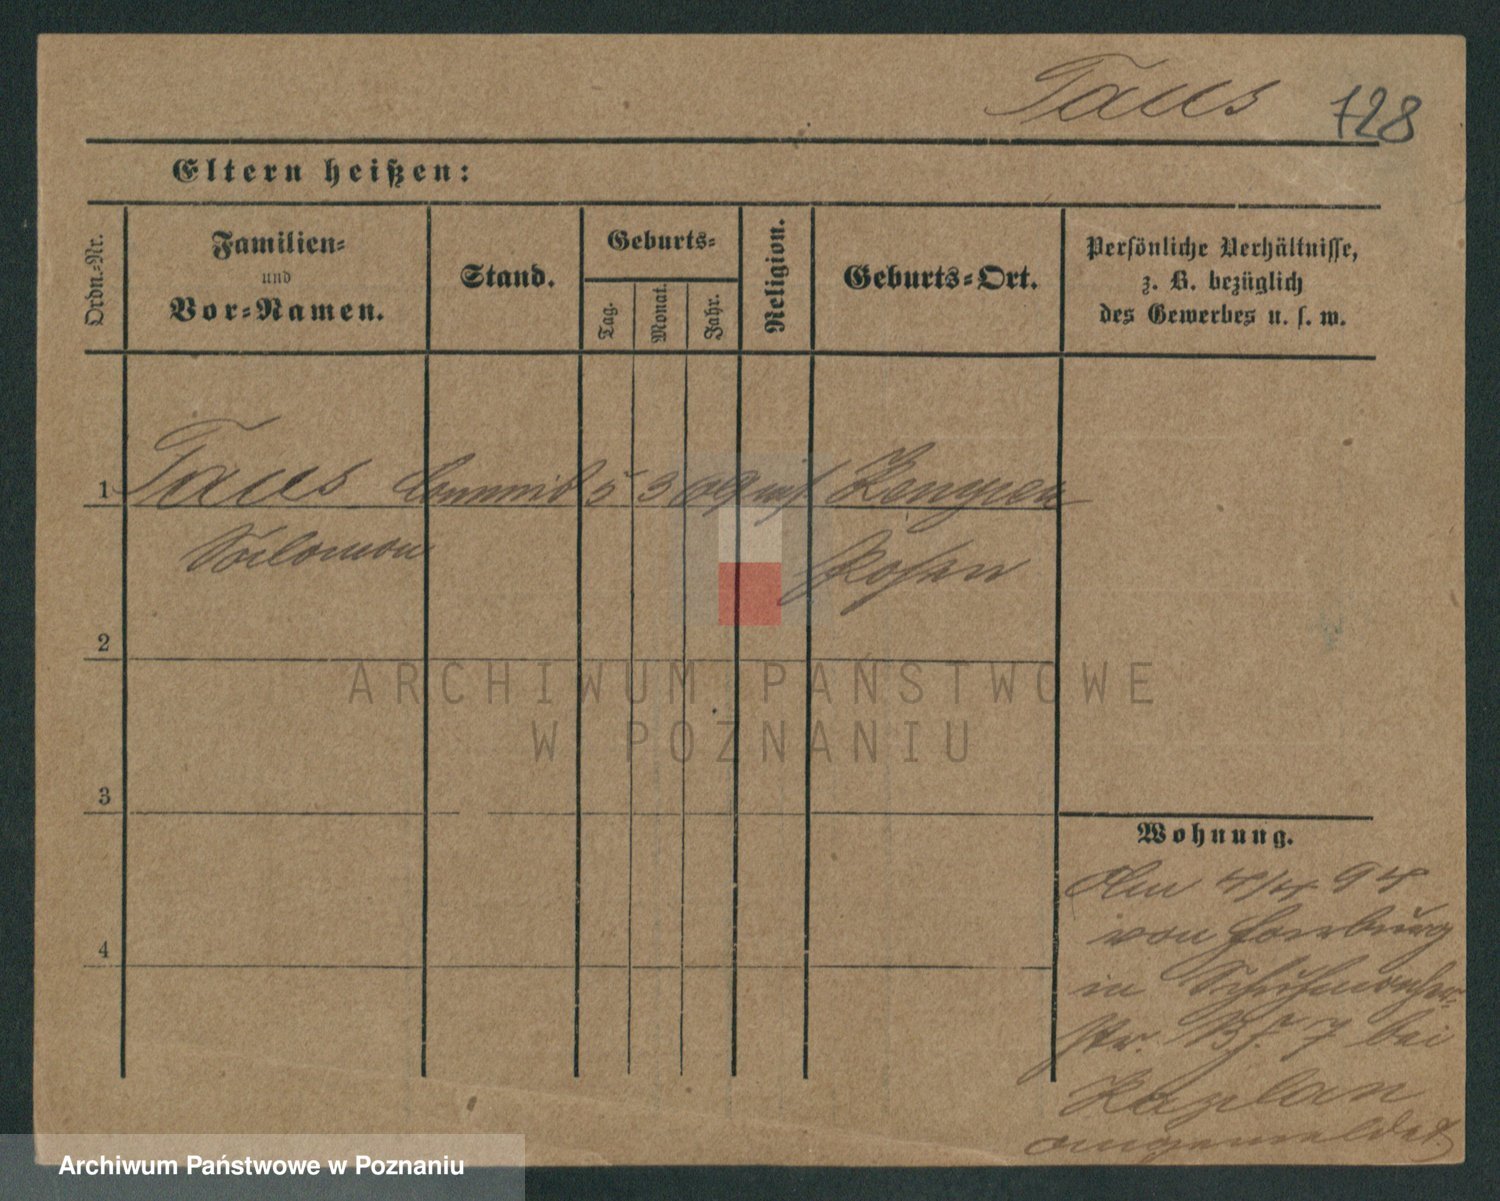 Taus 728
Eltern heißen:
Ordn.-Nr.
Familien-
und
Vor-Namen.
Stand.
Geburts-
Tag.
Monat.
Jahr.
Religion.
Geburts-Ort.
Persönliche Verhältnisse,
z. B. bezüglich
des Gewerbes u. s. w.
1 Taus Commis 5 3 69
Salomon Posen
2
3
4
Wohnung.
Am 4/4 94
von
in Schuhmacher-
str. 7 bei
Kaplan
angemeldet
ARCHIWUM PAŃSTWOWE
W POZNANIU
Archiwum Państwowe w Poznaniu